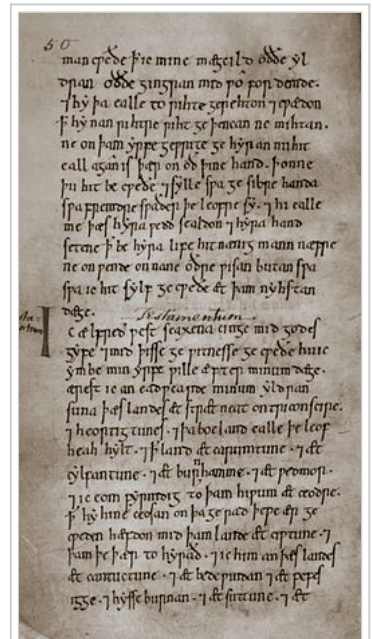 50
man cƿæðe ꝥ ic mine mægcild oððe yl
dran oððe gingran mid ƿo fordemde.
⁊ hy þa ealle to rihte gerehton ⁊ cƿædon
ꝥ hy nan rihtre riht ge þencan ne mihtan.
ne on þam yrfe geƿrite ge hyran nu hit
eall agan is þær on oð þine hand. þonne
þu hit be cƿeðe ⁊ sylle sƿa ge sibre handa
sƿa fremdre sƿaðer þe leofre sy. ⁊ hi ealle
me þæs hyra ƿedd sealdon ⁊ hyra hand
setene ꝥ be hyra life hit nænig mann næfre
ne on ƿende on nane oðre ƿisan butan sƿa
sƿa ic hit sylf ge cƿeðe æt þam nyhstan
dæge. Testamentum.
Ic ælfred ƿest seaxena cinge mid godes
gyfe ⁊ mid þisse ge ƿitnesse ge cƿeðe hu ic
ymbe min yrfe ƿille æfter minum dæge.
ærest ic an eadƿearde minum yldran
suna þæs landes æt stræt neat on triconscire.
⁊ heortigtunes. ⁊ þa bocland ealle þe leof
heah hylt. ⁊ ꝥ land æt carumtune. ⁊ æt
cylfantune. ⁊ æt burnhamme. ⁊ æt ƿedmor.
⁊ ic eom fyrmdig to þam hiƿum æt ceodre.
ꝥ hy hine ceosan on þa ge rad þe ƿe ær ge
cƿeden hæfdon mid þam lande æt ciƿtune. ⁊
þam þe þær to hyrað. ⁊ ic him an þæs landes
æt cantuctune. ⁊ æt bedeƿindan ⁊ æt pefes
igge. ⁊ hysse burnan. ⁊ æt suttune. ⁊ æt